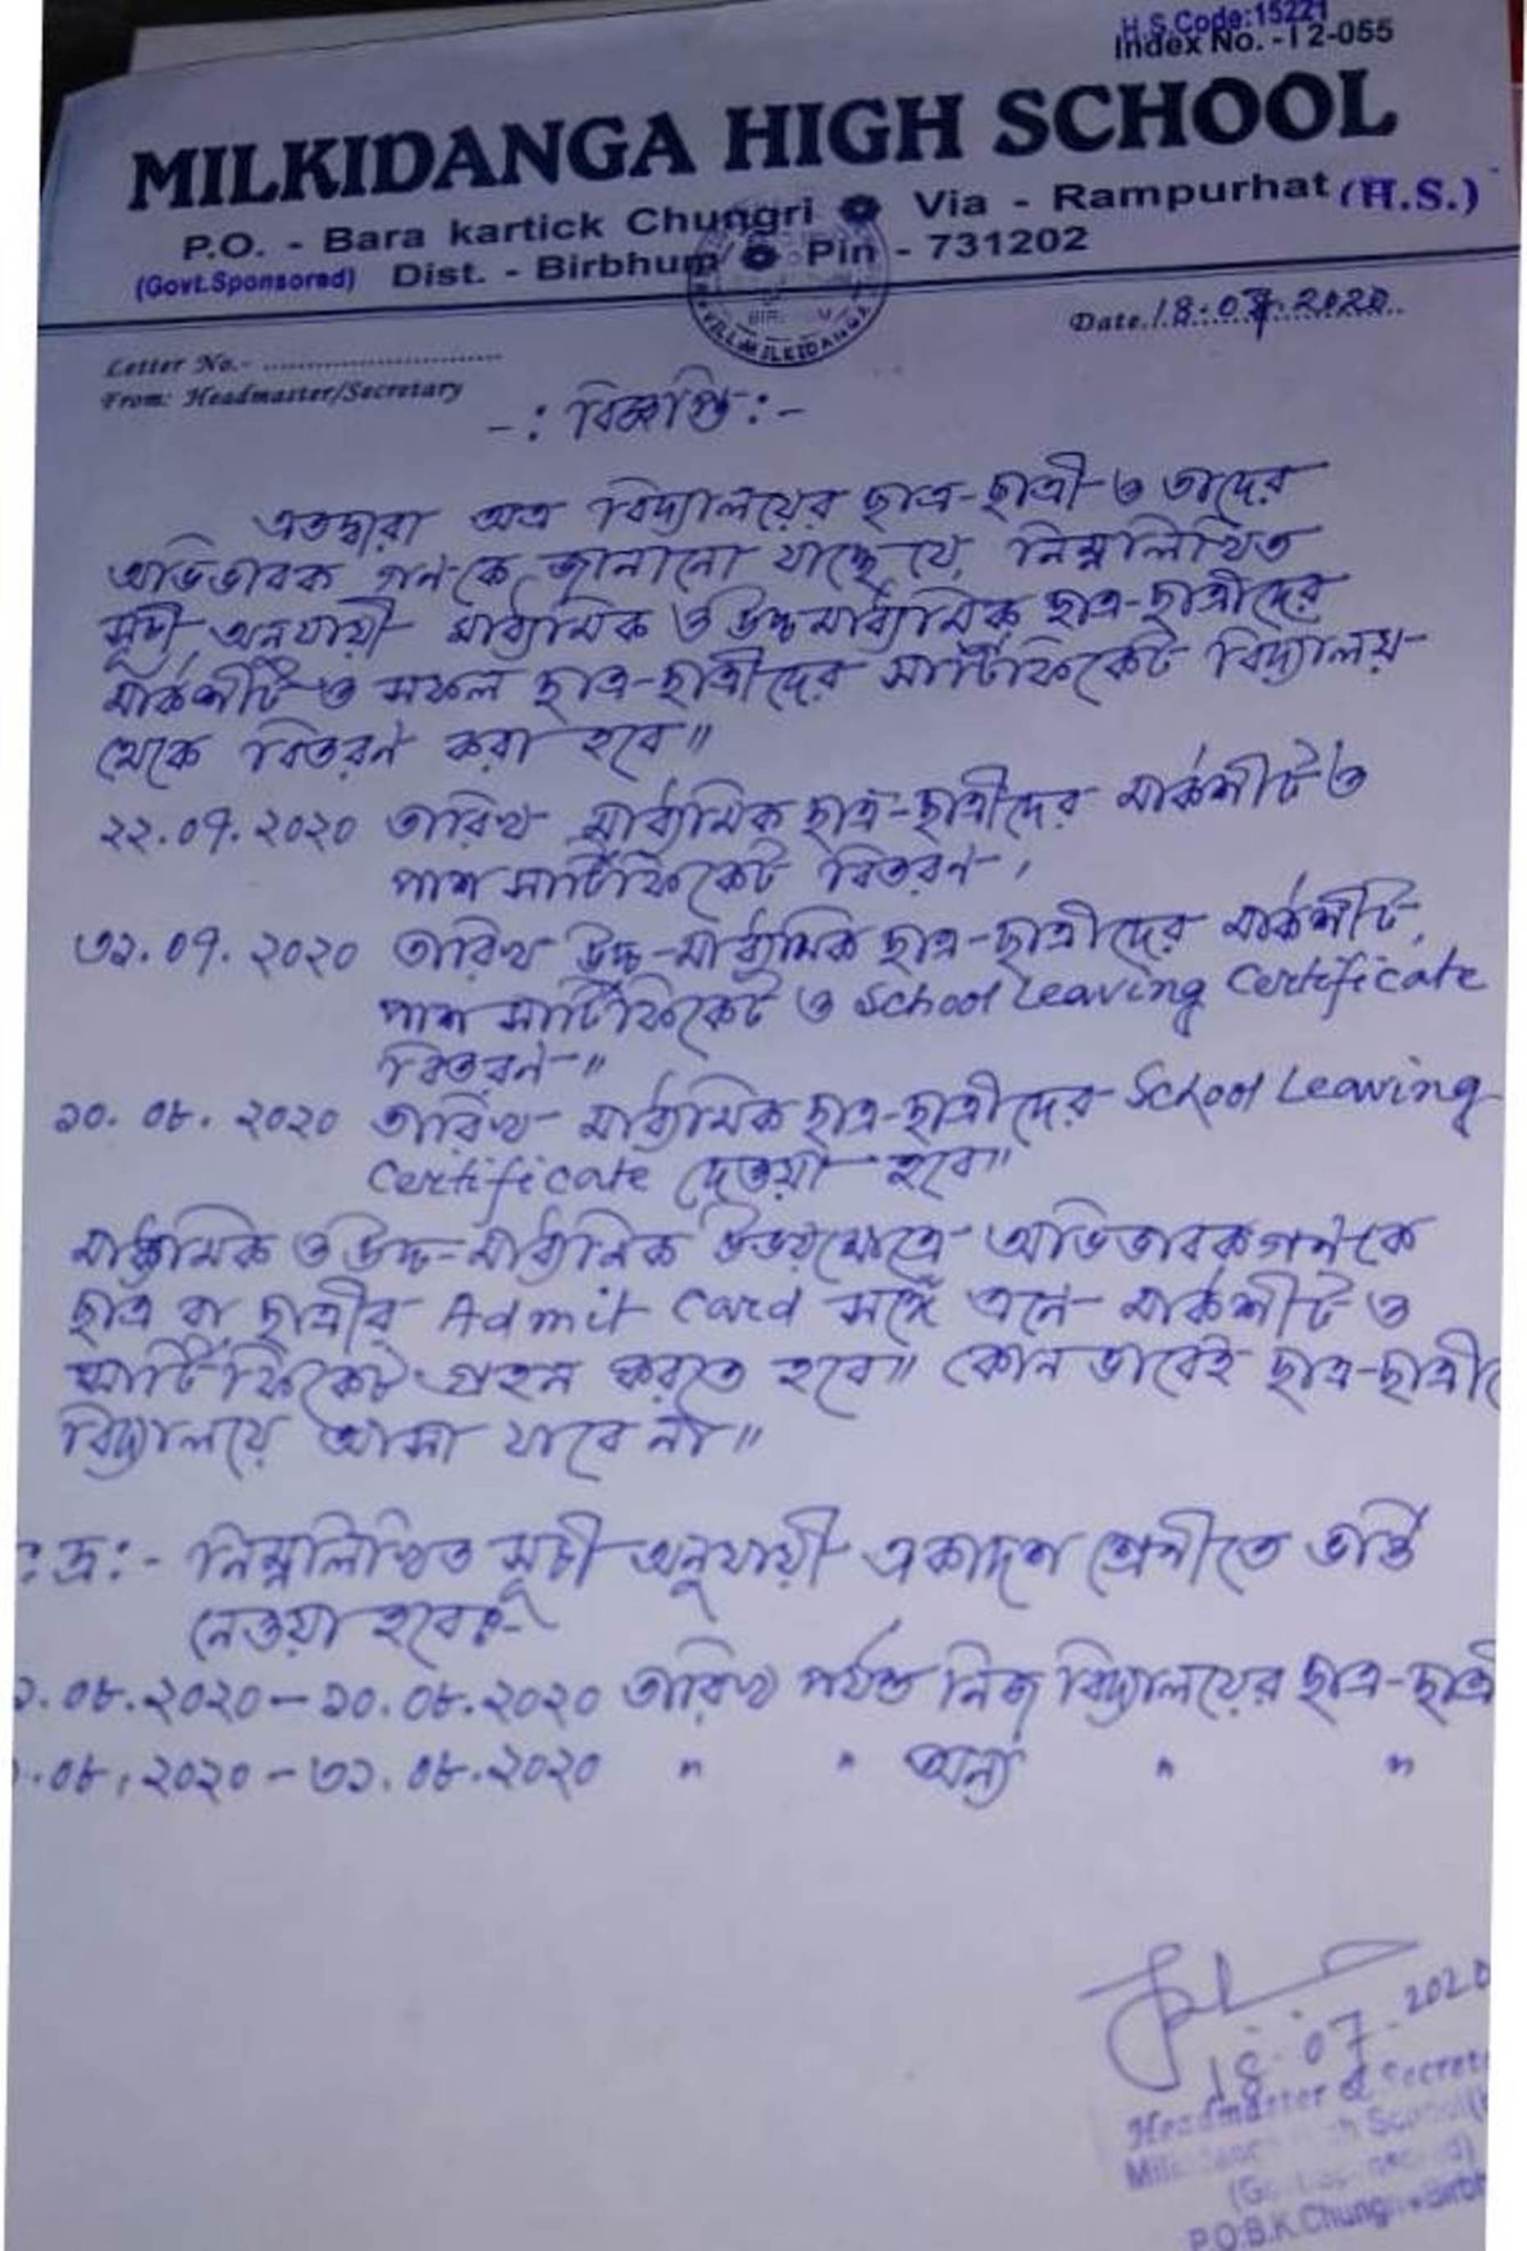 H.S.Code:15221
Index No. -12-055
MILKIDANGA HIGH SCHOOL
(H.S.)
P.O. - Bara kartick Chungri Via - Rampurhat
(Govt.Sponsored) Dist. - Birbhum Pin - 731202
VILL-MILKIDANGA
Date.18.07.2020
Letter No.-
From: Headmaster/Secretary
-: বিজ্ঞপ্তি :-
এতদ্বারা অত্র বিদ্যালয়ের ছাত্র-ছাত্রী ও তাদের
অভিভাবক গনকে জানানো যাচ্ছে যে, নিম্নলিখিত
সূচী অনুযায়ী মাধ্যমিক ও উচ্চমাধ্যমিক ছাত্র-ছাত্রীদের
মার্কশীট ও সফল ছাত্র-ছাত্রীদের সার্টিফিকেট বিদ্যালয়
থেকে বিতরন করা হবে॥
২২.০৭.২০২০ তারিখ মাধ্যমিক ছাত্র-ছাত্রীদের মার্কশীট ও
পাশ সার্টিফিকেট বিতরন,
৩১.০৭.২০২০ তারিখ উচ্চ-মাধ্যমিক ছাত্র-ছাত্রীদের মার্কশীট,
পাশ সার্টিফিকেট ও School Leaving Certificate
বিতরন॥
১০.০৮.২০২০ তারিখ মাধ্যমিক ছাত্র-ছাত্রীদের School Leaving
Certificate দেওয়া হবে॥
মাধ্যমিক ও উচ্চ-মাধ্যমিক উভয়ক্ষেত্রে অভিভাবকগনকে
ছাত্র বা ছাত্রীর Admit Card সঙ্গে এনে মার্কশীট ও
সার্টিফিকেট গ্রহন করতে হবে॥ কোন ভাবেই ছাত্র-ছাত্রী
বিদ্যালয়ে আসা যাবে না॥
: দ্র:- নিম্নলিখিত সূচী অনুযায়ী একাদশ শ্রেনীতে ভর্ত্তি
নেওয়া হবে:-
১.০৮.২০২০ - ১০.০৮.২০২০ তারিখ পর্যন্ত নিজ বিদ্যালয়ের ছাত্র-ছাত্রী
.০৮.২০২০ - ৩১.০৮.২০২০ " " অন্য " "
18.07.2020
Headmaster & Secret
P.O.B.K.Chungri